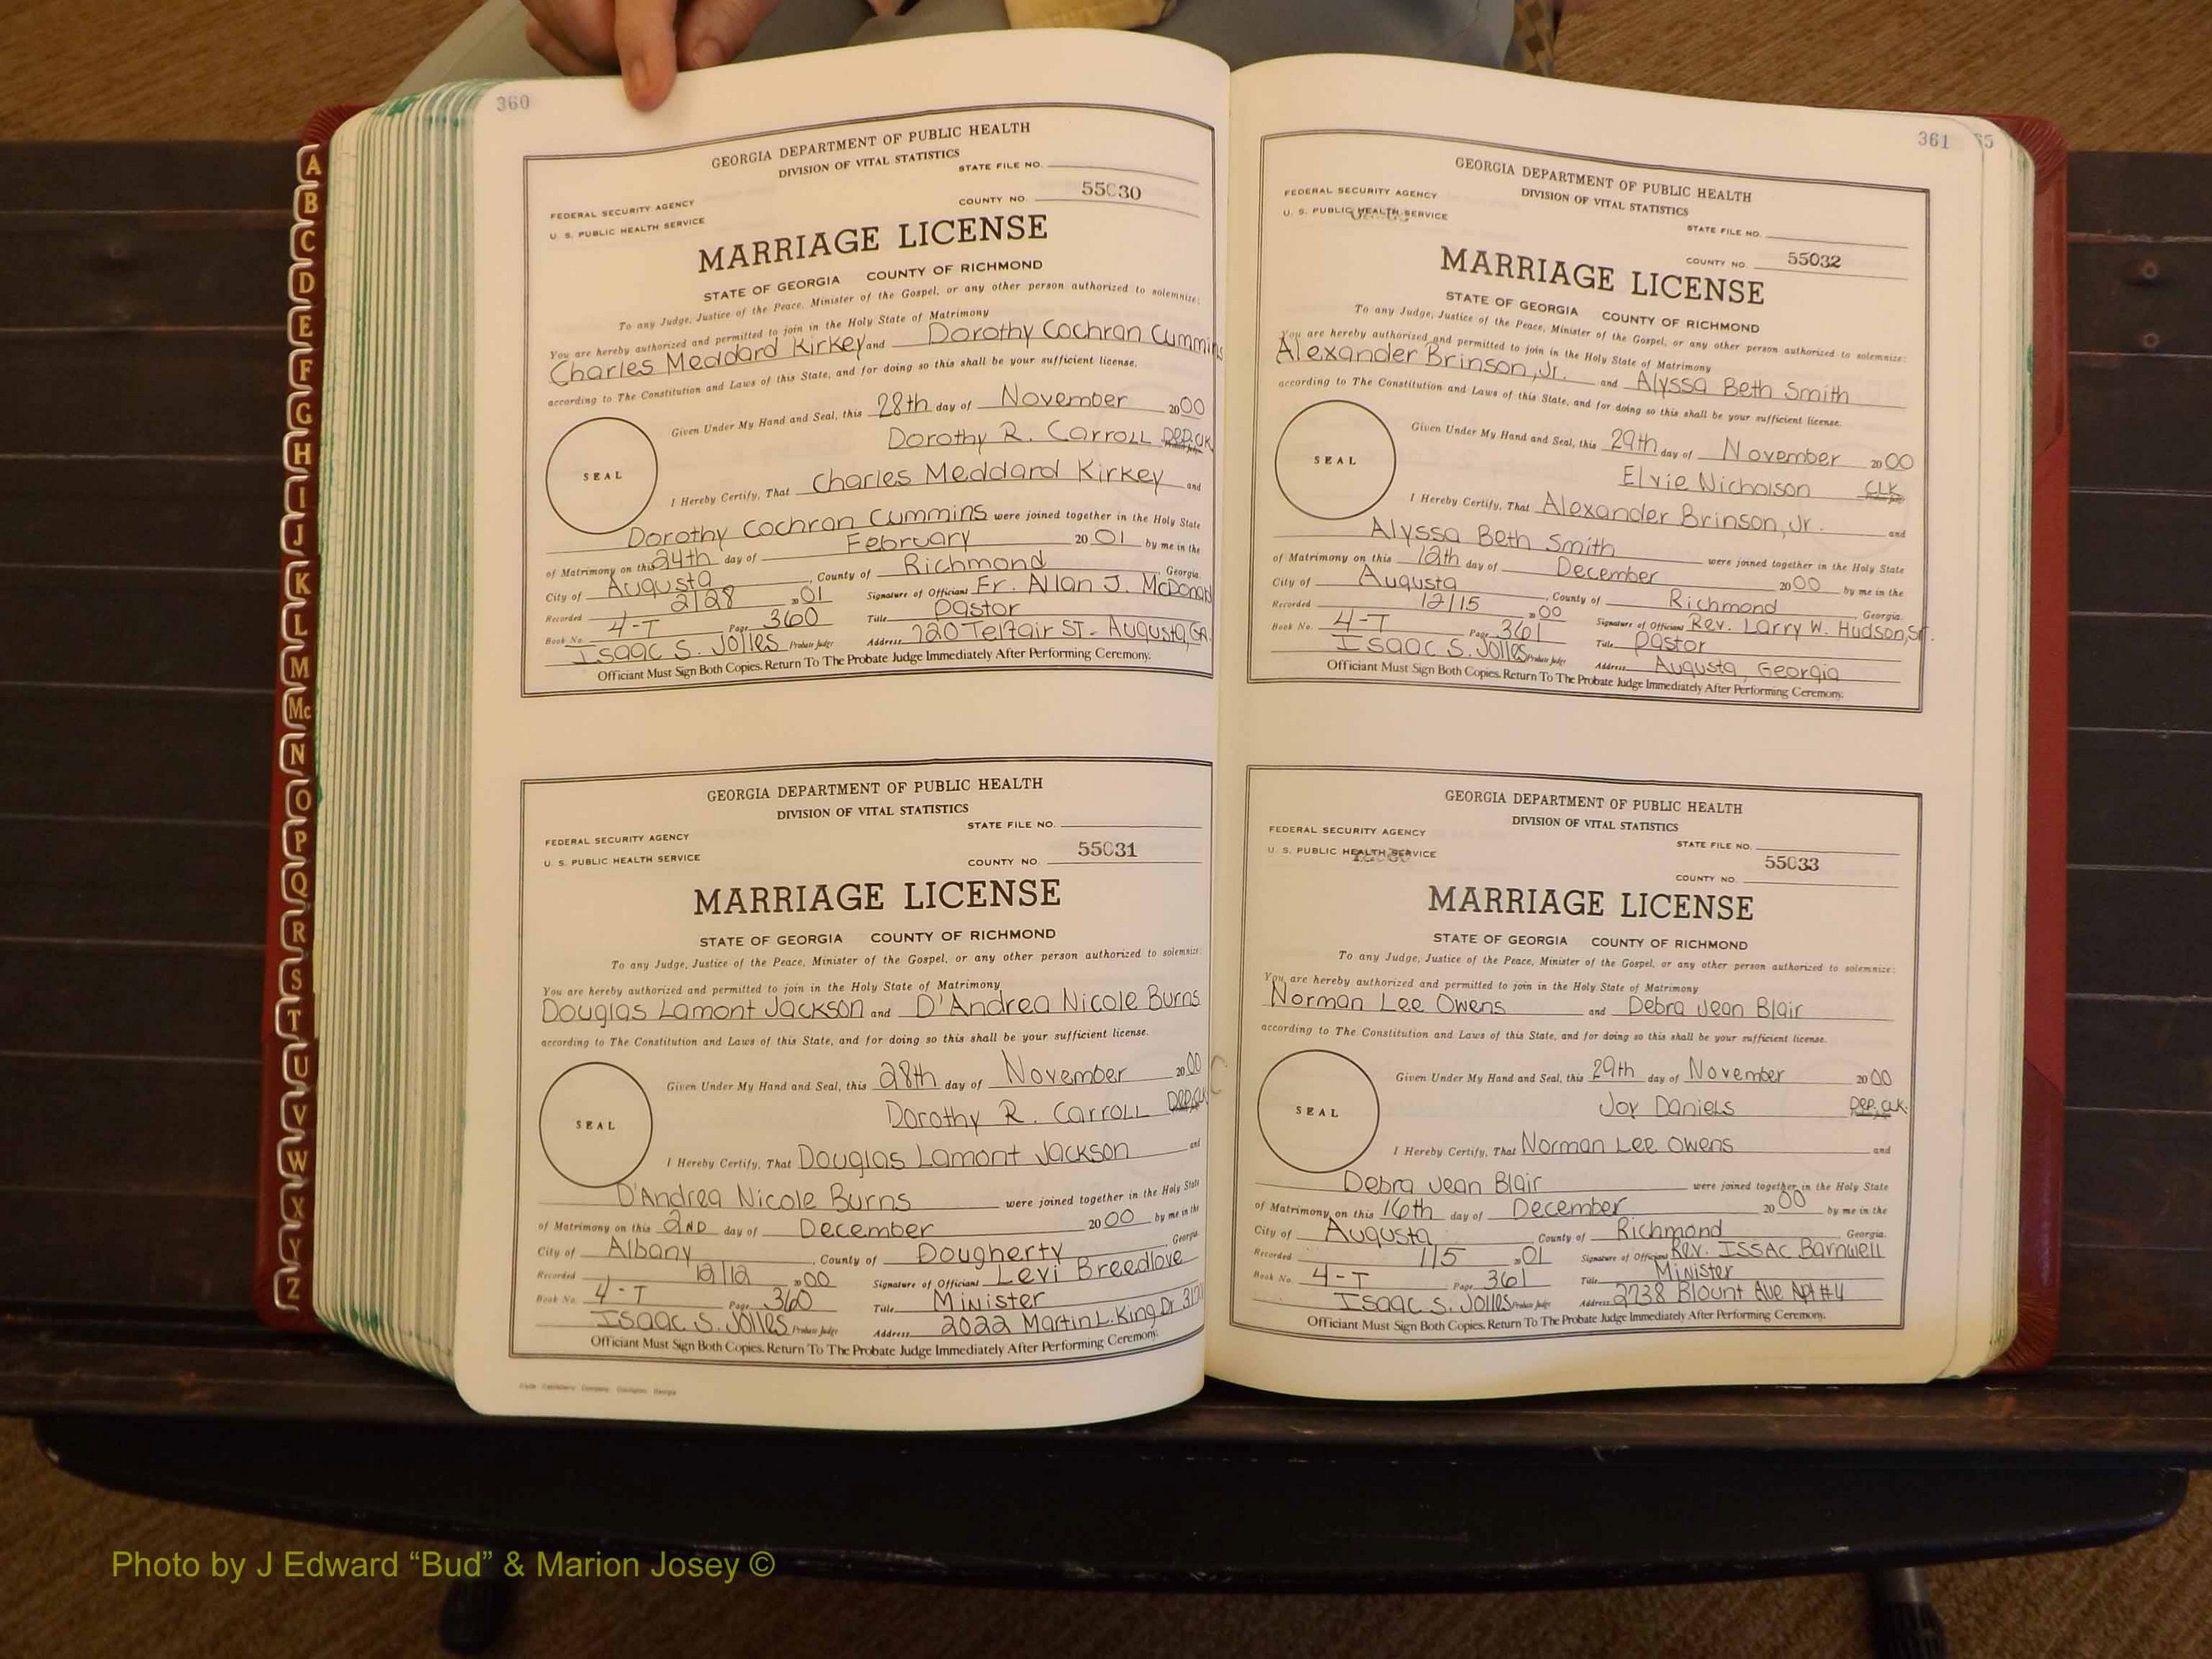 A
B
C
D
E
F
G
H
I
J
K
L
M
Mc
N
O
P
Q
R
S
T
U
V
W
X
Y
Z
360
GEORGIA DEPARTMENT OF PUBLIC HEALTH
DIVISION OF VITAL STATISTICS
STATE FILE NO.
FEDERAL SECURITY AGENCY
COUNTY NO. 55030
U. S. PUBLIC HEALTH SERVICE
MARRIAGE LICENSE
STATE OF GEORGIA COUNTY OF RICHMOND
To any Judge, Justice of the Peace, Minister of the Gospel, or any other person authorized to solemnize:
You are hereby authorized and permitted to join in the Holy State of Matrimony
Charles Meddard Kirkey and Dorothy Cochran Cummins
according to The Constitution and Laws of this State, and for doing so this shall be your sufficient license.
Given Under My Hand and Seal, this 28th day of November 2000
Dorothy R. Carroll Dep. Clk
SEAL
I Hereby Certify, That Charles Meddard Kirkey and
Dorothy Cochran Cummins were joined together in the Holy State
of Matrimony on this 24th day of February 2001 by me in the
City of Augusta, County of Richmond, Georgia.
Recorded 2/28 2001 Signature of Officiant Fr. Allan J. McDonald
Book No. 4-T Page 360 Title Pastor
Isaac S. Jolles Probate Judge Address 720 Telfair St. Augusta, GA.
Officiant Must Sign Both Copies. Return To The Probate Judge Immediately After Performing Ceremony.
GEORGIA DEPARTMENT OF PUBLIC HEALTH
DIVISION OF VITAL STATISTICS
STATE FILE NO.
FEDERAL SECURITY AGENCY
COUNTY NO. 55031
U. S. PUBLIC HEALTH SERVICE
MARRIAGE LICENSE
STATE OF GEORGIA COUNTY OF RICHMOND
To any Judge, Justice of the Peace, Minister of the Gospel, or any other person authorized to solemnize:
You are hereby authorized and permitted to join in the Holy State of Matrimony
Douglas Lamont Jackson and D'Andrea Nicole Burns
according to The Constitution and Laws of this State, and for doing so this shall be your sufficient license.
Given Under My Hand and Seal, this 28th day of November 2000
Dorothy R. Carroll Dep. Clk
SEAL
I Hereby Certify, That Douglas Lamont Jackson and
D'Andrea Nicole Burns were joined together in the Holy State
of Matrimony on this 2ND day of December 2000 by me in the
City of Albany, County of Dougherty, Georgia.
Recorded 12/12 2000 Signature of Officiant Levi Breedlove
Book No. 4-T Page 360 Title Minister
Isaac S. Jolles Probate Judge Address 2022 Martin L. King Dr
Officiant Must Sign Both Copies. Return To The Probate Judge Immediately After Performing Ceremony.
361
GEORGIA DEPARTMENT OF PUBLIC HEALTH
DIVISION OF VITAL STATISTICS
FEDERAL SECURITY AGENCY
U. S. PUBLIC HEALTH SERVICE
STATE FILE NO.
COUNTY NO. 55032
MARRIAGE LICENSE
STATE OF GEORGIA COUNTY OF RICHMOND
To any Judge, Justice of the Peace, Minister of the Gospel, or any other person authorized to solemnize:
You are hereby authorized and permitted to join in the Holy State of Matrimony
Alexander Brinson, Jr. and Alyssa Beth Smith
according to The Constitution and Laws of this State, and for doing so this shall be your sufficient license.
Given Under My Hand and Seal, this 29th day of November 2000
Elvie Nicholson CLK
SEAL
I Hereby Certify, That Alexander Brinson, Jr. and
Alyssa Beth Smith were joined together in the Holy State
of Matrimony on this 12th day of December 2000 by me in the
City of Augusta, County of Richmond, Georgia.
Recorded 12/15 2000 Signature of Officiant Rev. Larry W. Hudson, Sr.
Book No. 4-T Page 361 Title Pastor
Isaac S. Jolles Probate Judge Address Augusta, Georgia
Officiant Must Sign Both Copies. Return To The Probate Judge Immediately After Performing Ceremony.
GEORGIA DEPARTMENT OF PUBLIC HEALTH
DIVISION OF VITAL STATISTICS
FEDERAL SECURITY AGENCY
U. S. PUBLIC HEALTH SERVICE
STATE FILE NO.
COUNTY NO. 55033
MARRIAGE LICENSE
STATE OF GEORGIA COUNTY OF RICHMOND
To any Judge, Justice of the Peace, Minister of the Gospel, or any other person authorized to solemnize:
You are hereby authorized and permitted to join in the Holy State of Matrimony
Norman Lee Owens and Debra Jean Blair
according to The Constitution and Laws of this State, and for doing so this shall be your sufficient license.
Given Under My Hand and Seal, this 29th day of November 2000
Joy Daniels Dep. Clk.
SEAL
I Hereby Certify, That Norman Lee Owens and
Debra Jean Blair were joined together in the Holy State
of Matrimony on this 16th day of December 2000 by me in the
City of Augusta, County of Richmond, Georgia.
Recorded 1/5 2001 Signature of Officiant Rev. Issac Barnwell
Book No. 4-T Page 361 Title Minister
Isaac S. Jolles Probate Judge Address 2738 Blount Ave Apt #4
Officiant Must Sign Both Copies. Return To The Probate Judge Immediately After Performing Ceremony.
Photo by J Edward “Bud” & Marion Josey ©